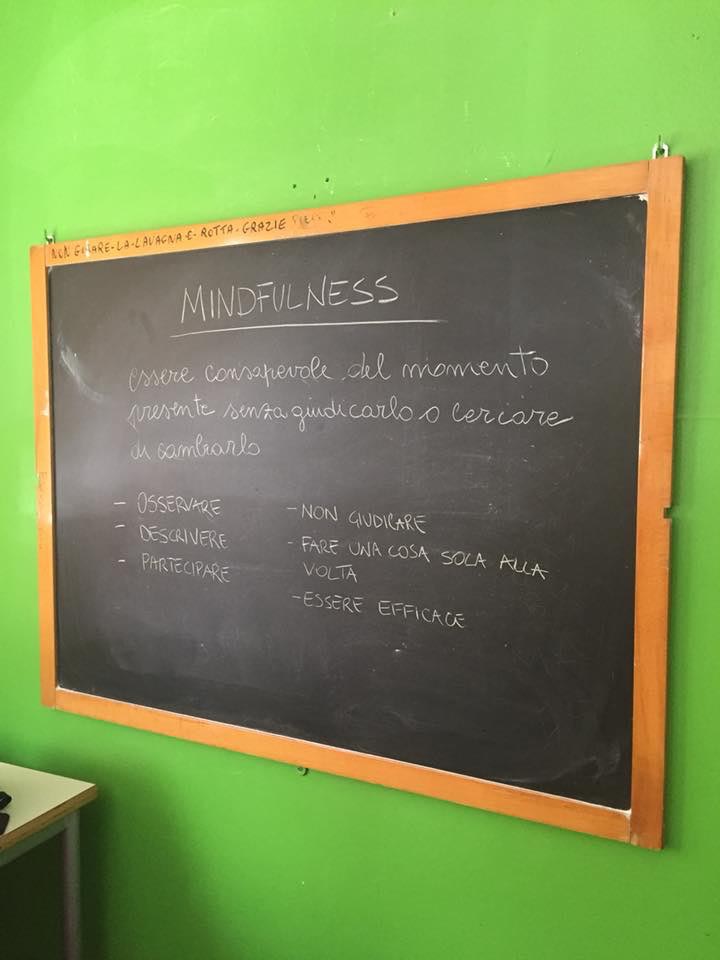 NON GIRARE-LA-LAVAGNA-E-ROTTA-GRAZIE
MINDFULNESS
essere consapevole del momento
presente senza giudicarlo o cercare
di cambiarlo
- OSSERVARE
- DESCRIVERE
- PARTECIPARE
- NON GIUDICARE
- FARE UNA COSA SOLA ALLA
VOLTA
- ESSERE EFFICACE